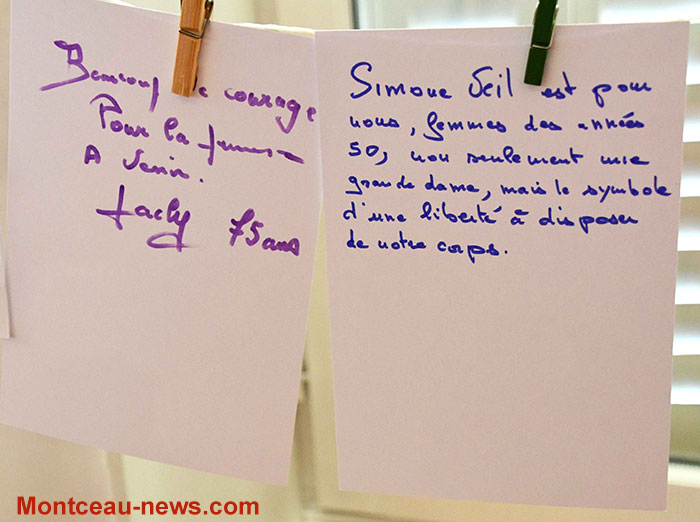 Beaucoup de courage
Pour la
A Venir.
Jacky 75 ans
Simone Veil est pour
nous, femmes des années
50, non seulement une
grande dame, mais le symbole
d'une liberté à disposer
de notre corps.
Montceau-news.com